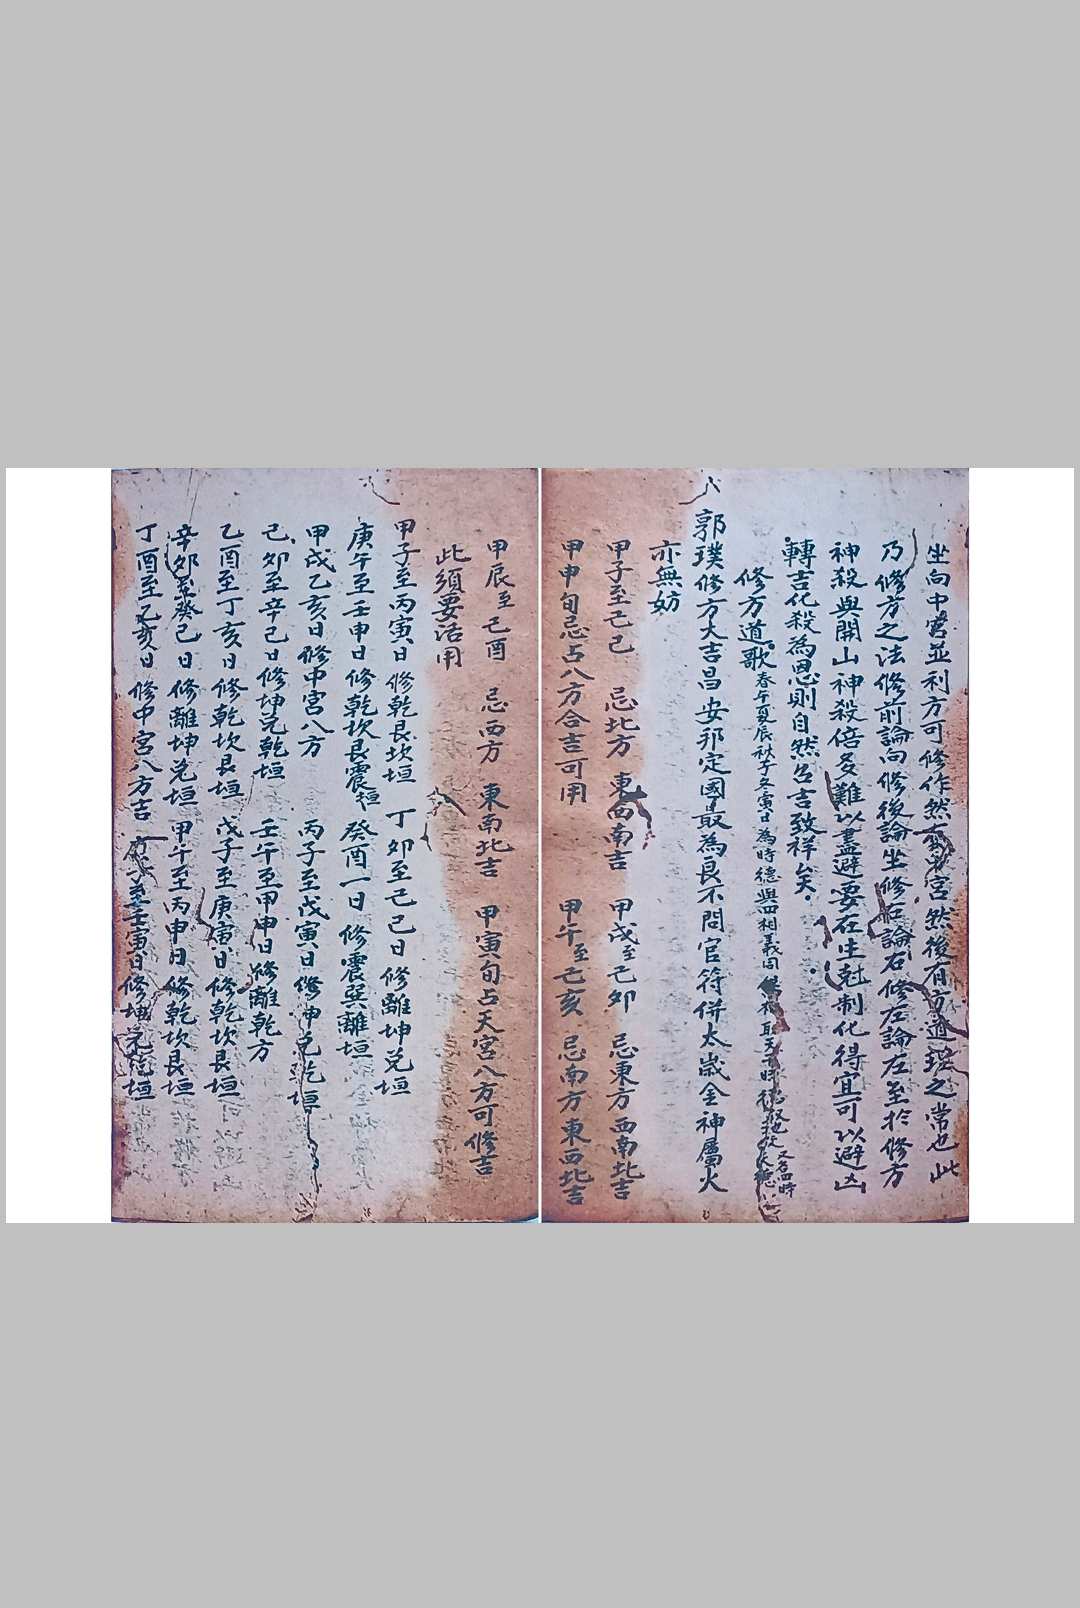 坐向中宮並利方可修作然後中宮然後有方道理之常也此
乃修方之法修前論向修後論坐修右論右修左論左至於修方
神殺與開山神殺倍多難以盡避要在生剋制化得宜可以避凶
轉吉化殺為恩則自然召吉致祥矣
修方道歌春午夏辰秋子冬寅日為時德與四相義同
郭璞修方大吉昌安邦定國最為良不問官符併太歲金神屬火
亦無妨
甲子至己巳 忌北方 東西南吉 甲戌至己卯 忌東方西南北吉
甲申旬忌占八方合吉可用 甲午至己亥 忌南方東西北吉
甲辰至己酉 忌西方 東南北吉 甲寅旬占天宮八方可修吉
此須要活用
甲子至丙寅日修乾艮坎垣 丁卯至己巳日修離坤兌垣
庚午至壬申日修乾坎艮震垣 癸酉一日修震巽離垣
甲戌乙亥日修中宮八方 丙子至戊寅日修坤兌乾垣
己卯至辛巳日修坤兌乾垣 壬午至甲申日修離乾方
乙酉至丁亥日修乾坎艮垣 戊子至庚寅日修乾坎艮垣
辛卯至癸巳日修離坤兌垣 甲午至丙申日修乾坎艮垣
丁酉至乙亥日修中宮八方吉 子至壬寅日修坤兌乾垣